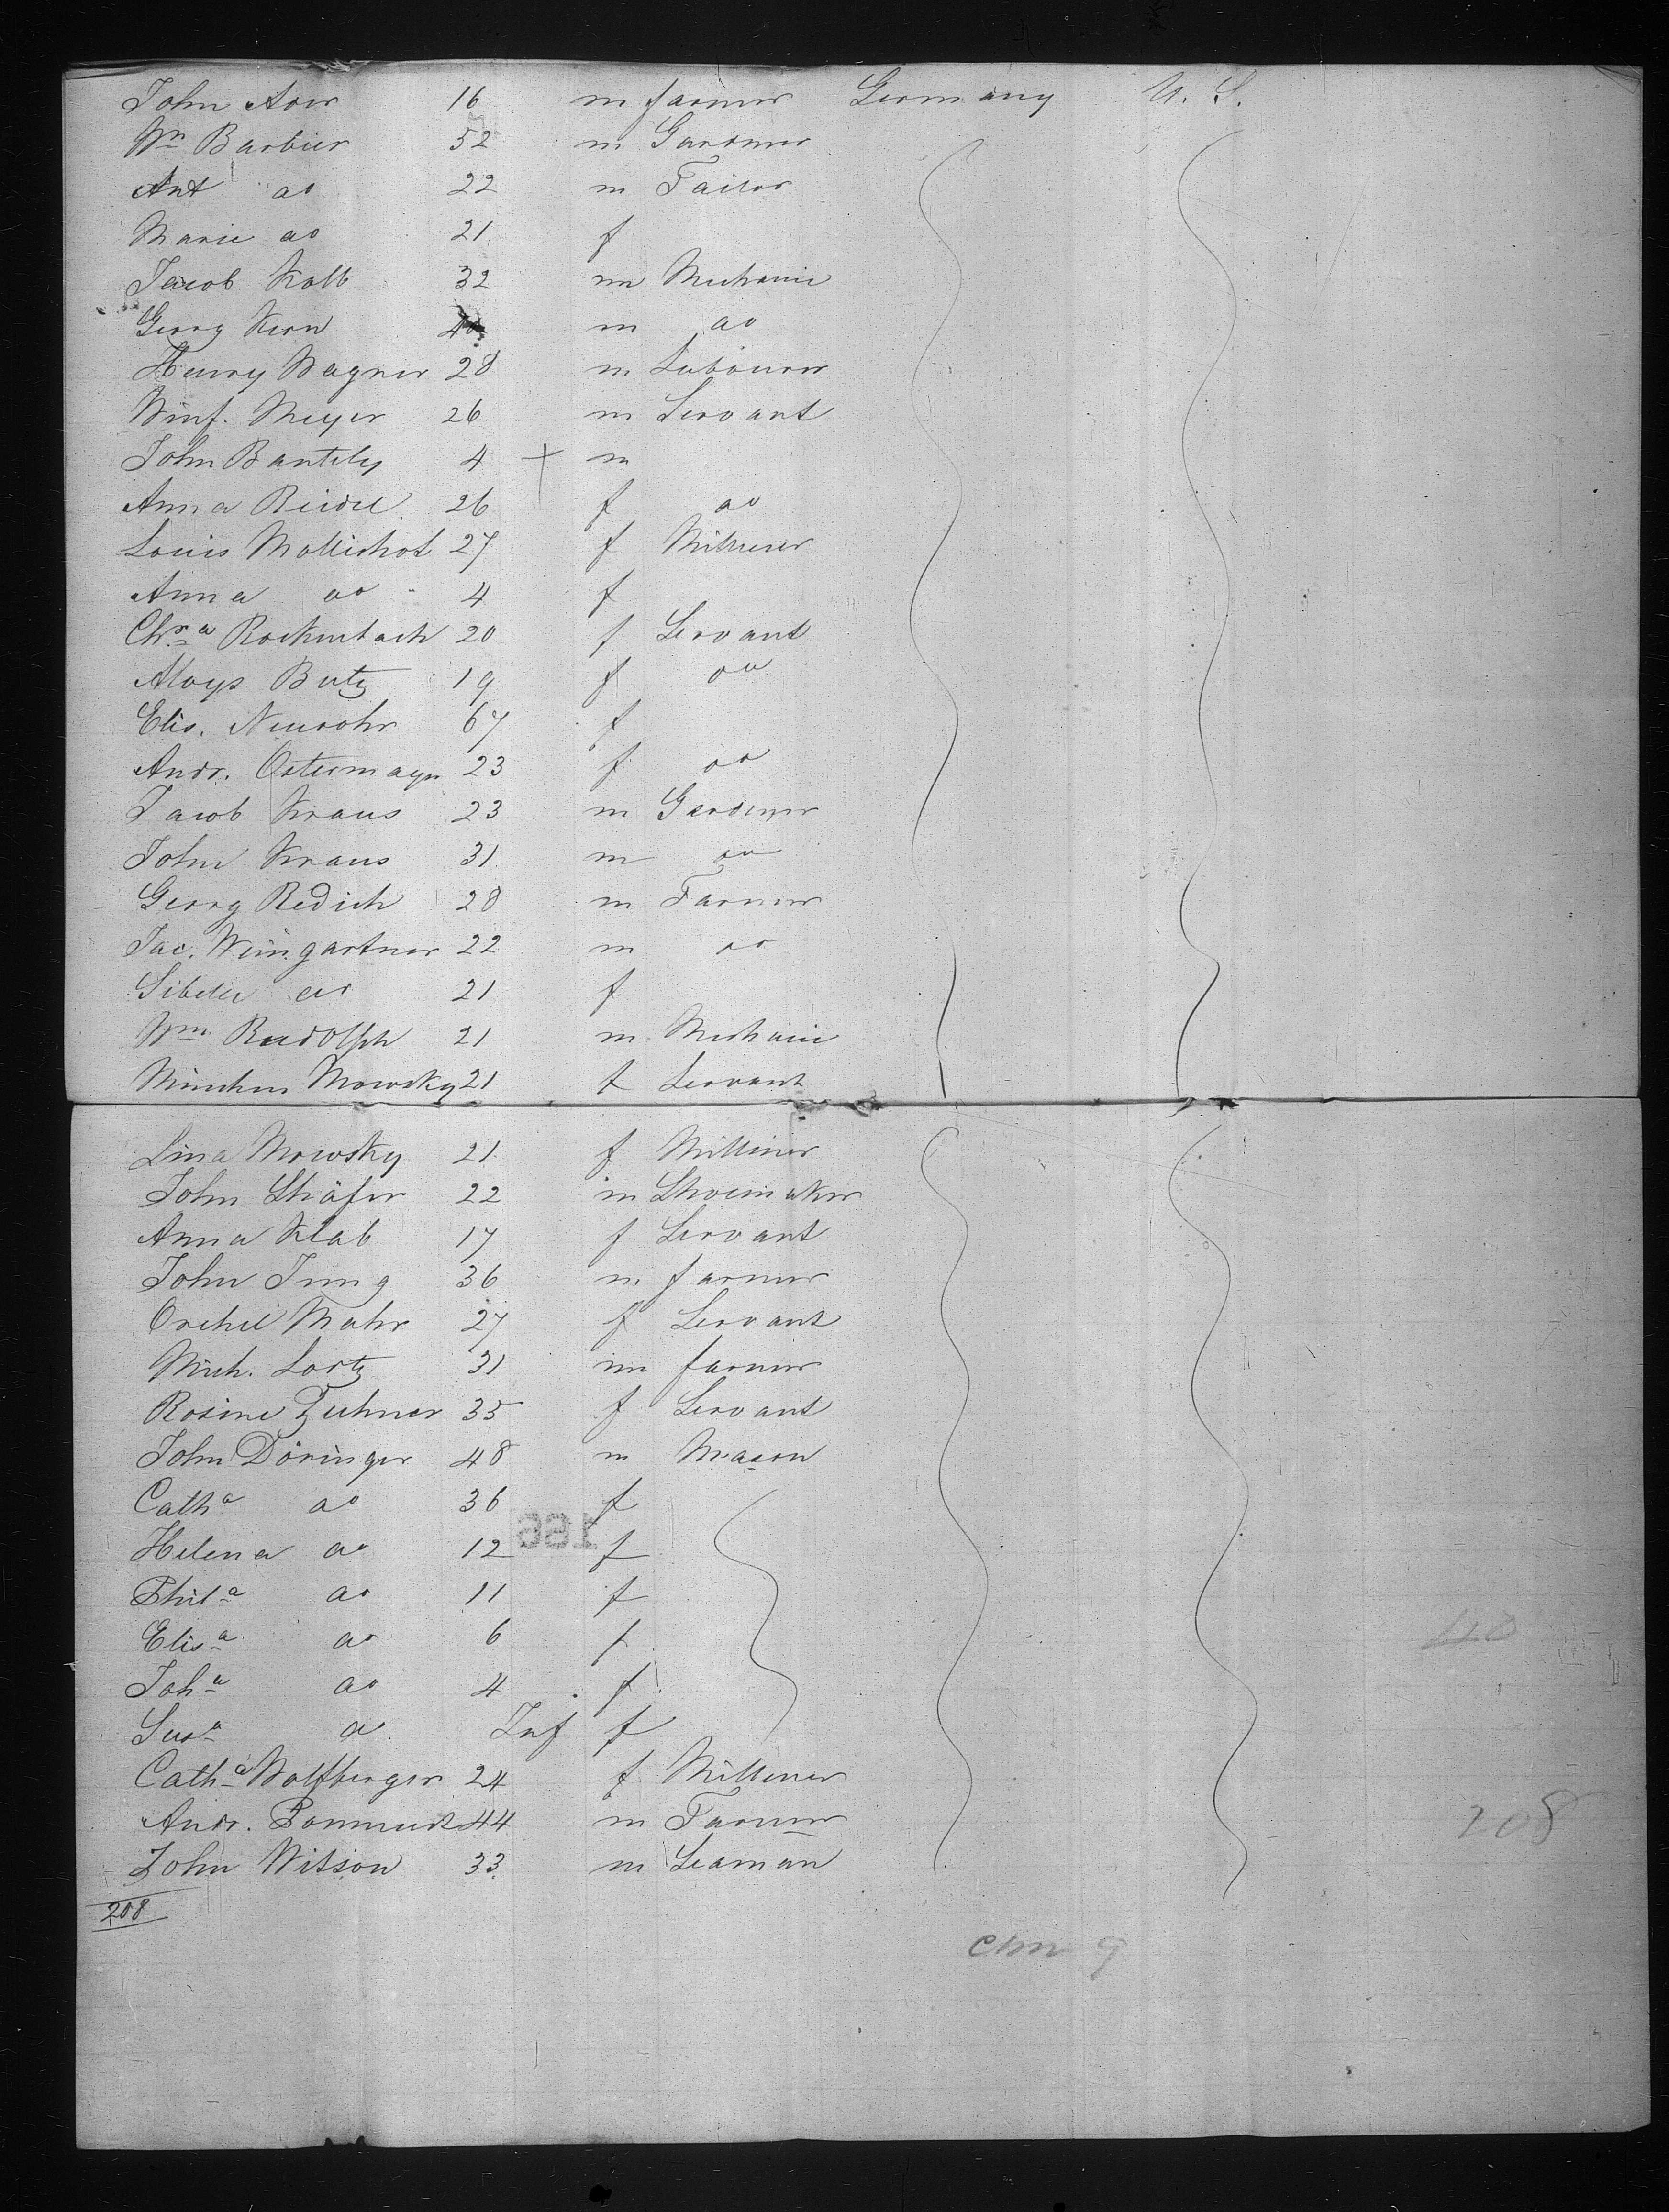 John Aow 16 m farmer Germany U. S.
Wm Barbier 52 m Gardner
Ant do 22 m Tailor
Marie do 21 f
Jacob Kolb 32 m Mechanic
Georg Kern m do
Henry Wagner 28 m Labourer
Winf. Meyer 26 m Servant
John Bantely 4 + m
Anna Riedel 26 f do
Louis Mollichot 27 f Milliner
Anna do 4 f
Chra Rockenbach 20 f Servant
Aloys Butz 19 f do
Elis. Neurohr 67 f
Andr. Ostermayr 23 f do
Jacob Kraus 23 m Gardener
John Kraus 31 m do
Georg Redich 28 m Farmer
Jac. Weingartner 22 m do
Sibille do 21 f
Wm Rudolph 21 m Mechanic
Minchen Mowsky 21 f Servant
Lina Mowsky 21 f Milliner
John Shäfer 22 m Shoemaker
Anna Klab 17 f Servant
John Jung 36 m farmer
Orchel Mahr 27 f Servant
Mich. Lortz 31 m farmer
Rosine Zuhner 35 f Servant
John Döringer 48 m Mason
Catha do 36 f
166
Helena do 12 f
Phila do 11 f
Elisa do 6 f
40
Joha do 4 f
Susa d Inf f
Catha Wolfberger 24 f Milliner
Andr. 44 m Farmer
208
John Witson 33 m Seaman
208